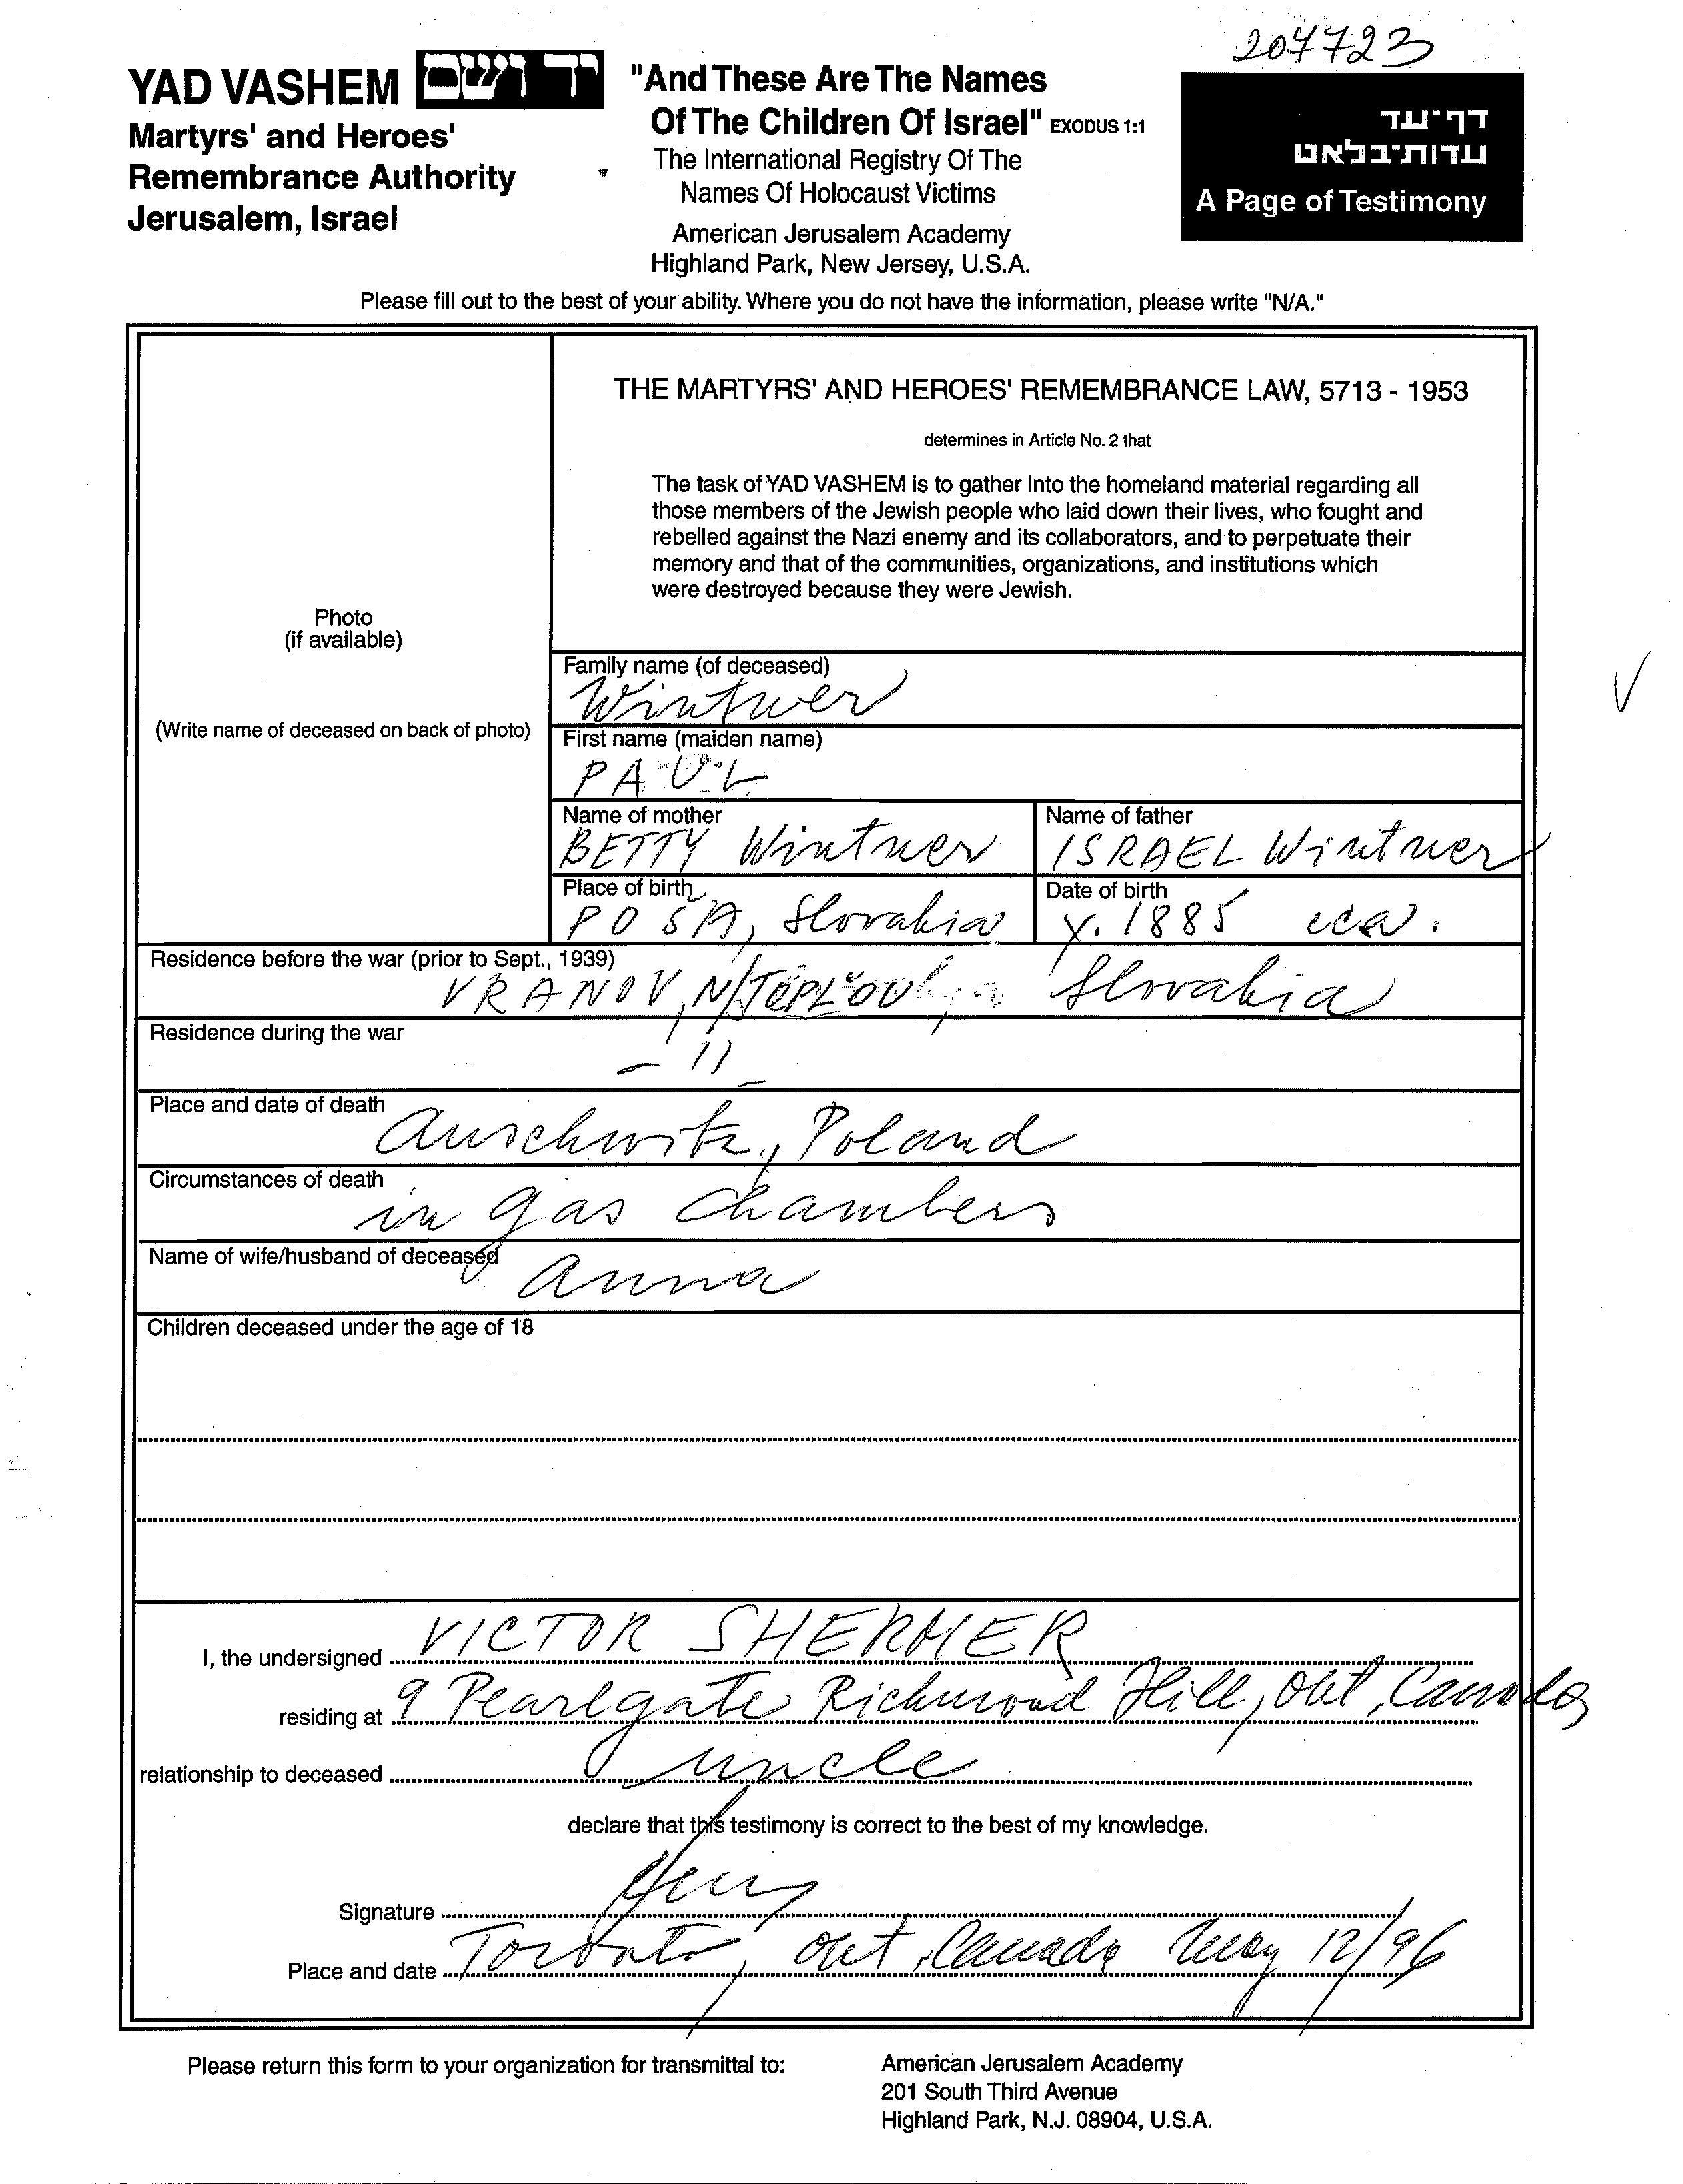 207723
YAD VASHEM יד ושם
Martyrs' and Heroes'
Remembrance Authority
Jerusalem, Israel
"And These Are The Names
Of The Children Of Israel" EXODUS 1:1
The International Registry Of The
Names Of Holocaust Victims
American Jerusalem Academy
Highland Park, New Jersey, U.S.A.
דף-עד
עדות-בלאט
A Page of Testimony
Please fill out to the best of your ability. Where you do not have the information, please write "N/A."
Photo
(if available)
(Write name of deceased on back of photo)
THE MARTYRS' AND HEROES' REMEMBRANCE LAW, 5713 - 1953
determines in Article No. 2 that
The task of YAD VASHEM is to gather into the homeland material regarding all
those members of the Jewish people who laid down their lives, who fought and
rebelled against the Nazi enemy and its collaborators, and to perpetuate their
memory and that of the communities, organizations, and institutions which
were destroyed because they were Jewish.
Family name (of deceased)
Wintner
First name (maiden name)
PAUL
Name of mother
BETTY Wintner
Name of father
ISRAEL Wintner
Place of birth
POSA, Slovakia
Date of birth
y. 1885 cca.
Residence before the war (prior to Sept., 1939)
VRANOV, N/TOPLOU Slovakia
Residence during the war
- 11 -
Place and date of death
Auschwitz, Poland
Circumstances of death
in gas chambers
Name of wife/husband of deceased
Anna
Children deceased under the age of 18
I, the undersigned VICTOR SHERMER
residing at 9 Pearlgate Richmond Hill, Ont, Canada
relationship to deceased uncle
declare that this testimony is correct to the best of my knowledge.
Signature
Place and date Toronto, Ont, Canada May 12/96
Please return this form to your organization for transmittal to:
American Jerusalem Academy
201 South Third Avenue
Highland Park, N.J. 08904, U.S.A.